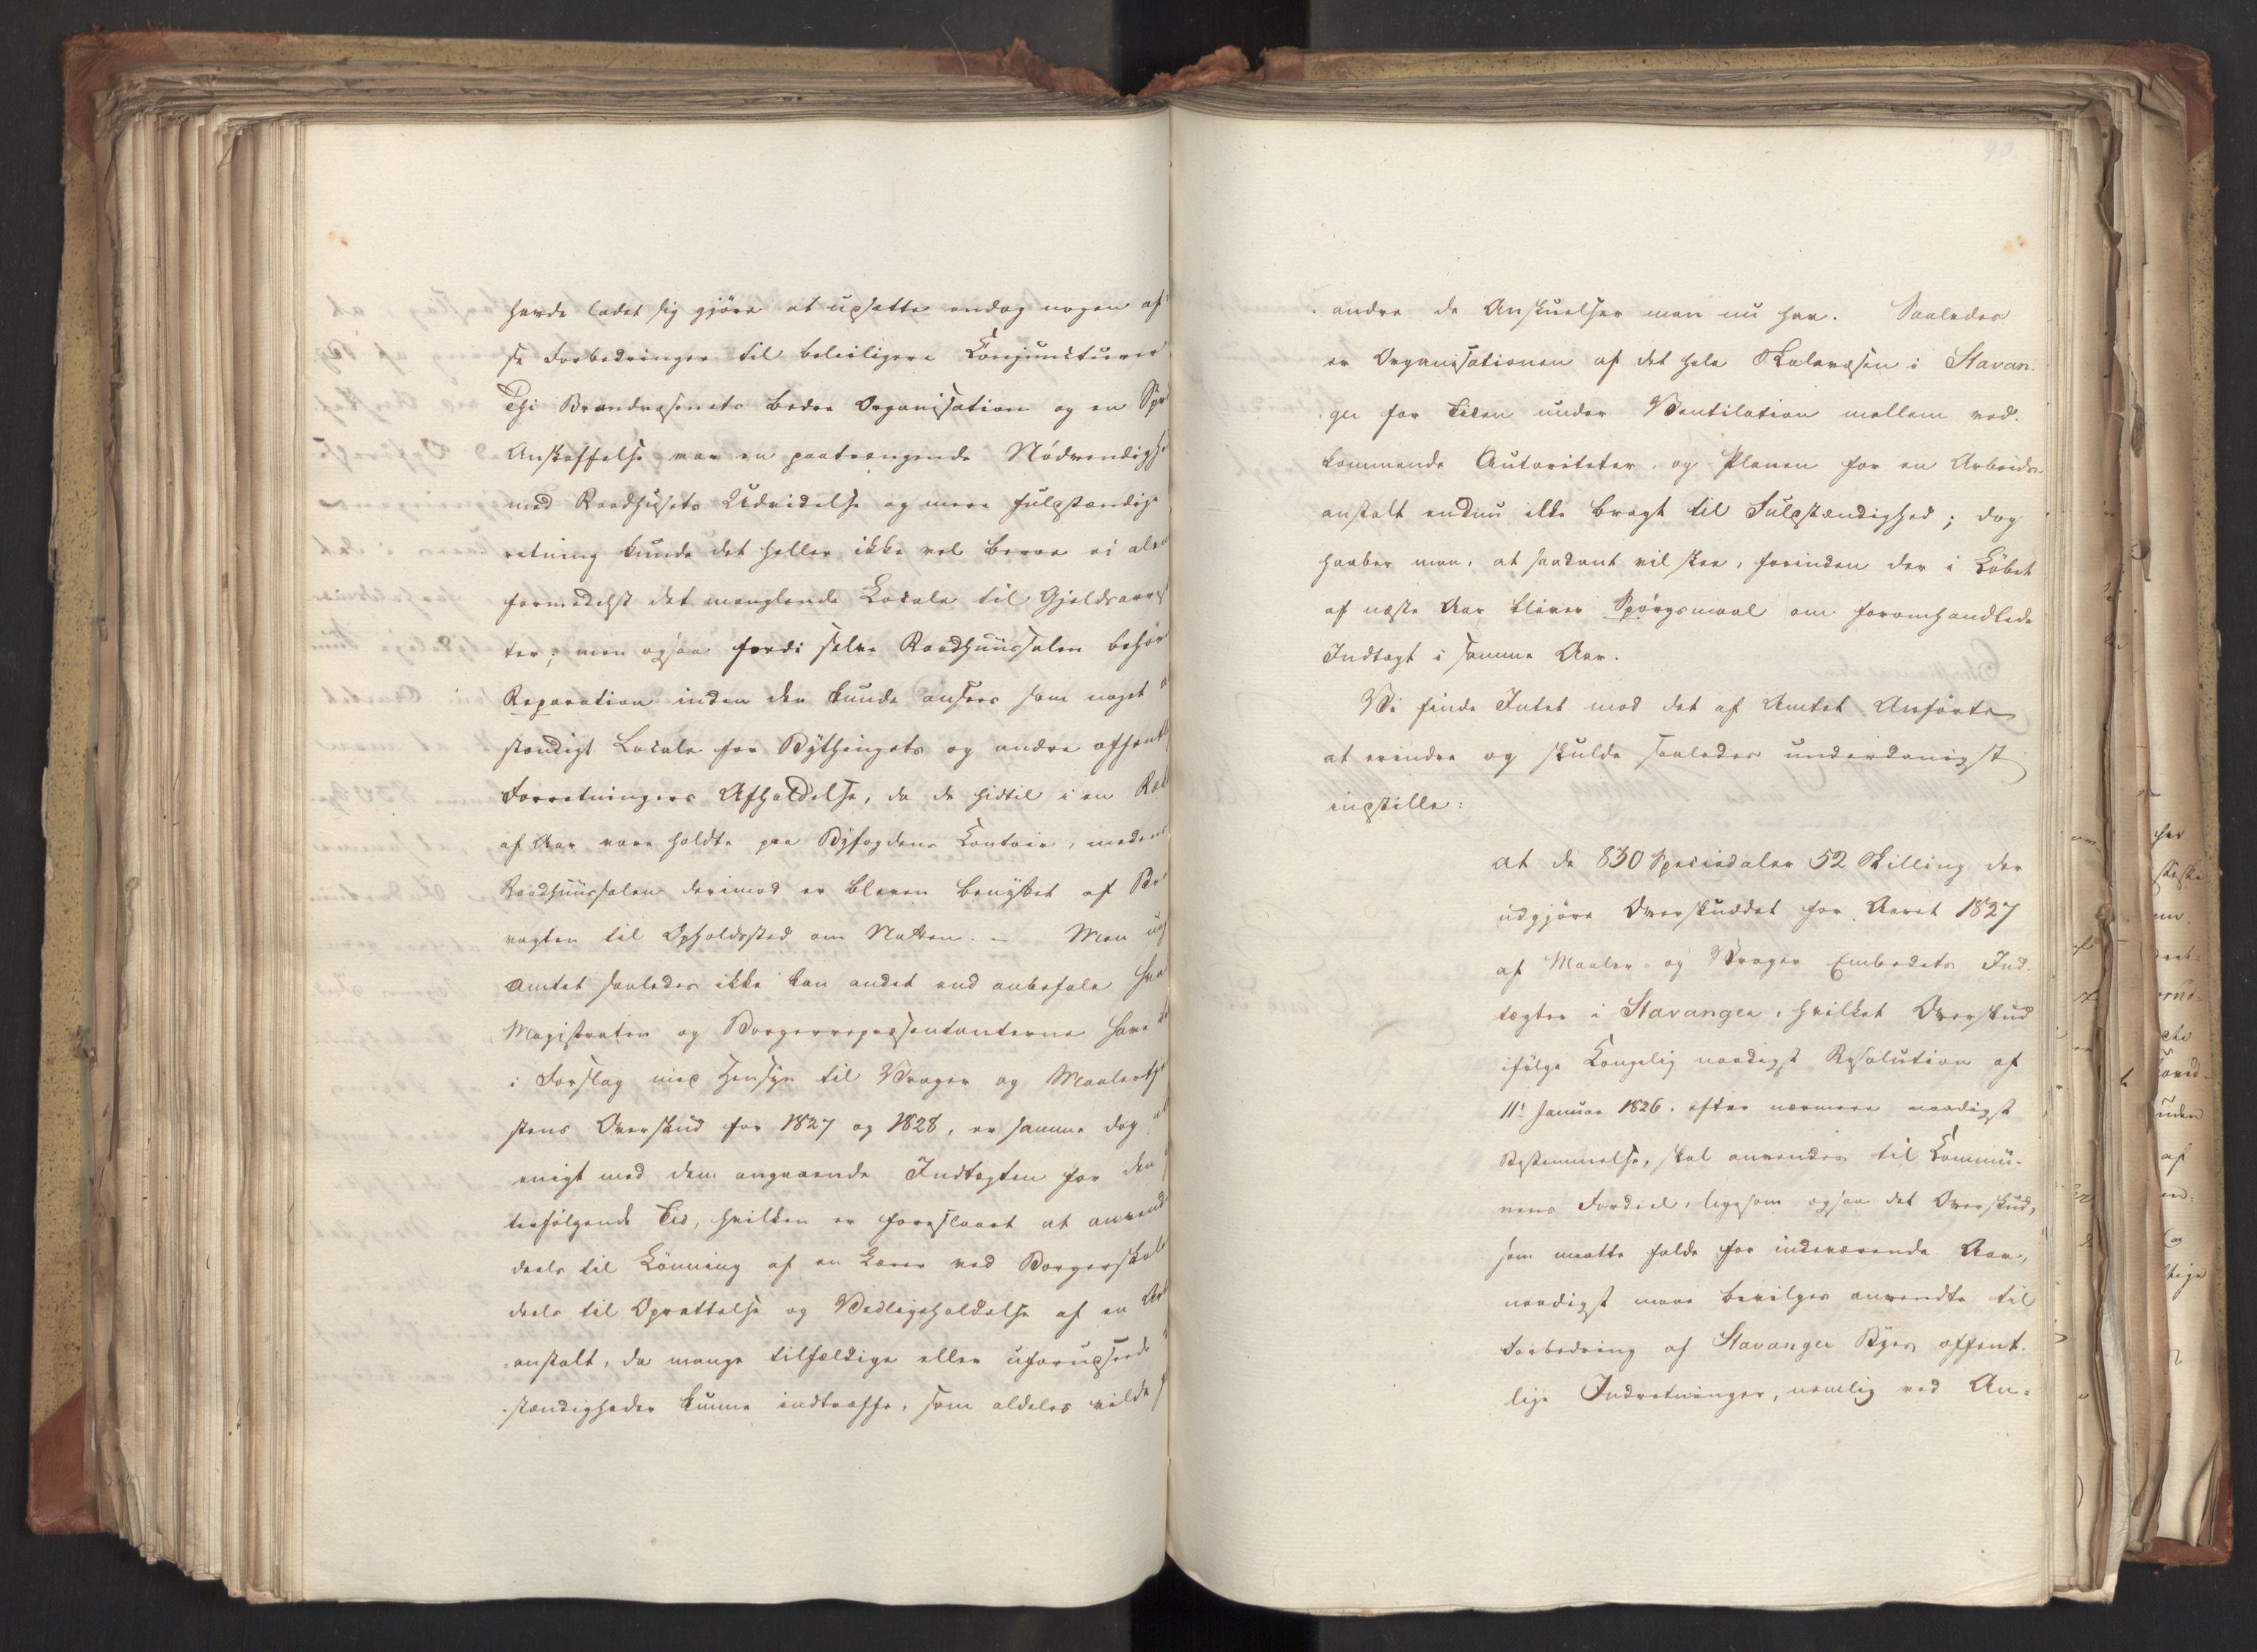 havde ladet sig gjöre at upsætte endog nogen af
se Forbedringer til beleiligere Conjuncturer
Thi Brandvæsenets bedre Organisation og en Sprö
Anskaffelse var en paatrængende Nödvendighe
med Raadhusets Udvidelse og mere fulstændige
retning kunde det heller ikke vel beroe ei alene
formedelst det manglende Locale til Gjeldsarres
ter; men ogsaa fordi selve Raadhuussalen behöv
Reparation inden den kunde ansees som noget a
stændigt Locale for Bythingets og andre offentl
Forretningers Afholdelse, da de hidtil i en Ræk
af Aar vare holdte paa Byfogdens Contoir, medens
Raadhuussalen derimod er bleven benyttet af Br
vagten til Opholdssted om Natten. – Men uag
Amtet saaledes ikke kan andet end anbefale hva
Magistraten og Borgerrepræsentanterne have
i Forslag med Hensyn til Vrager og Maalertje
stens Overskud for 1827 og 1828, er samme dog
enigt med dem angaaende Indtægten for den
terfölgende Tid, hvilken er foreslaaet at anvend
deels til Lönning af en Lærer ved Borgerskole
deels til Oprettelse og Vedligeholdelse af en Arb
anstalt, da mange tilfældige eller uforudseede
stændigheder kunne indtræffe, som aldeles vilde
andre de Anskuelser man nu har. Saaledes
er Organisationen af det hele Skolevæsen i Stavan-
ger for Tiden under Ventilation mellem ved-
kommende Autoriteter, og Planen for en Arbeids-
anstalt endnu ikke bragt til Fulstændighed; dog
haaber man, at saadant vil skee, forinden der i Löbet
af næste Aar bliver Spörgsmaal om foromhandlede
Indtægt i samme Aar.
Vi finde Intet mod det af Amtet Anförte
at erindre og skulde saaledes underdanigst
indstille:
at de 830 Speciedaler 52 Skilling der
udgjöre Overskuddet for Aaret 1827
af Maaler- og Vrager Embedets Ind-
tægter i Stavanger, hvilket Overskud
ifölge Kongelig naadigst Resolution af
11te Januar 1826. efter nærmere naadigst
Bestemmelse, skal anvendes til Commu-
nens Fordeel, ligesom ogsaa det Overskud,
som maatte falde for indeværende Aar,
naadigst maae bevilges anvendte til
Forbedring af Stavanger Byes offent-
lige Indretninger, nemlig ved An-